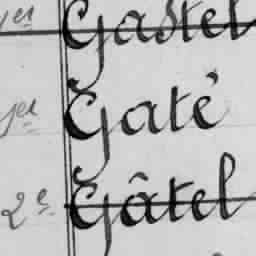 1er Gastel
1er Gaté
2e Gâtel